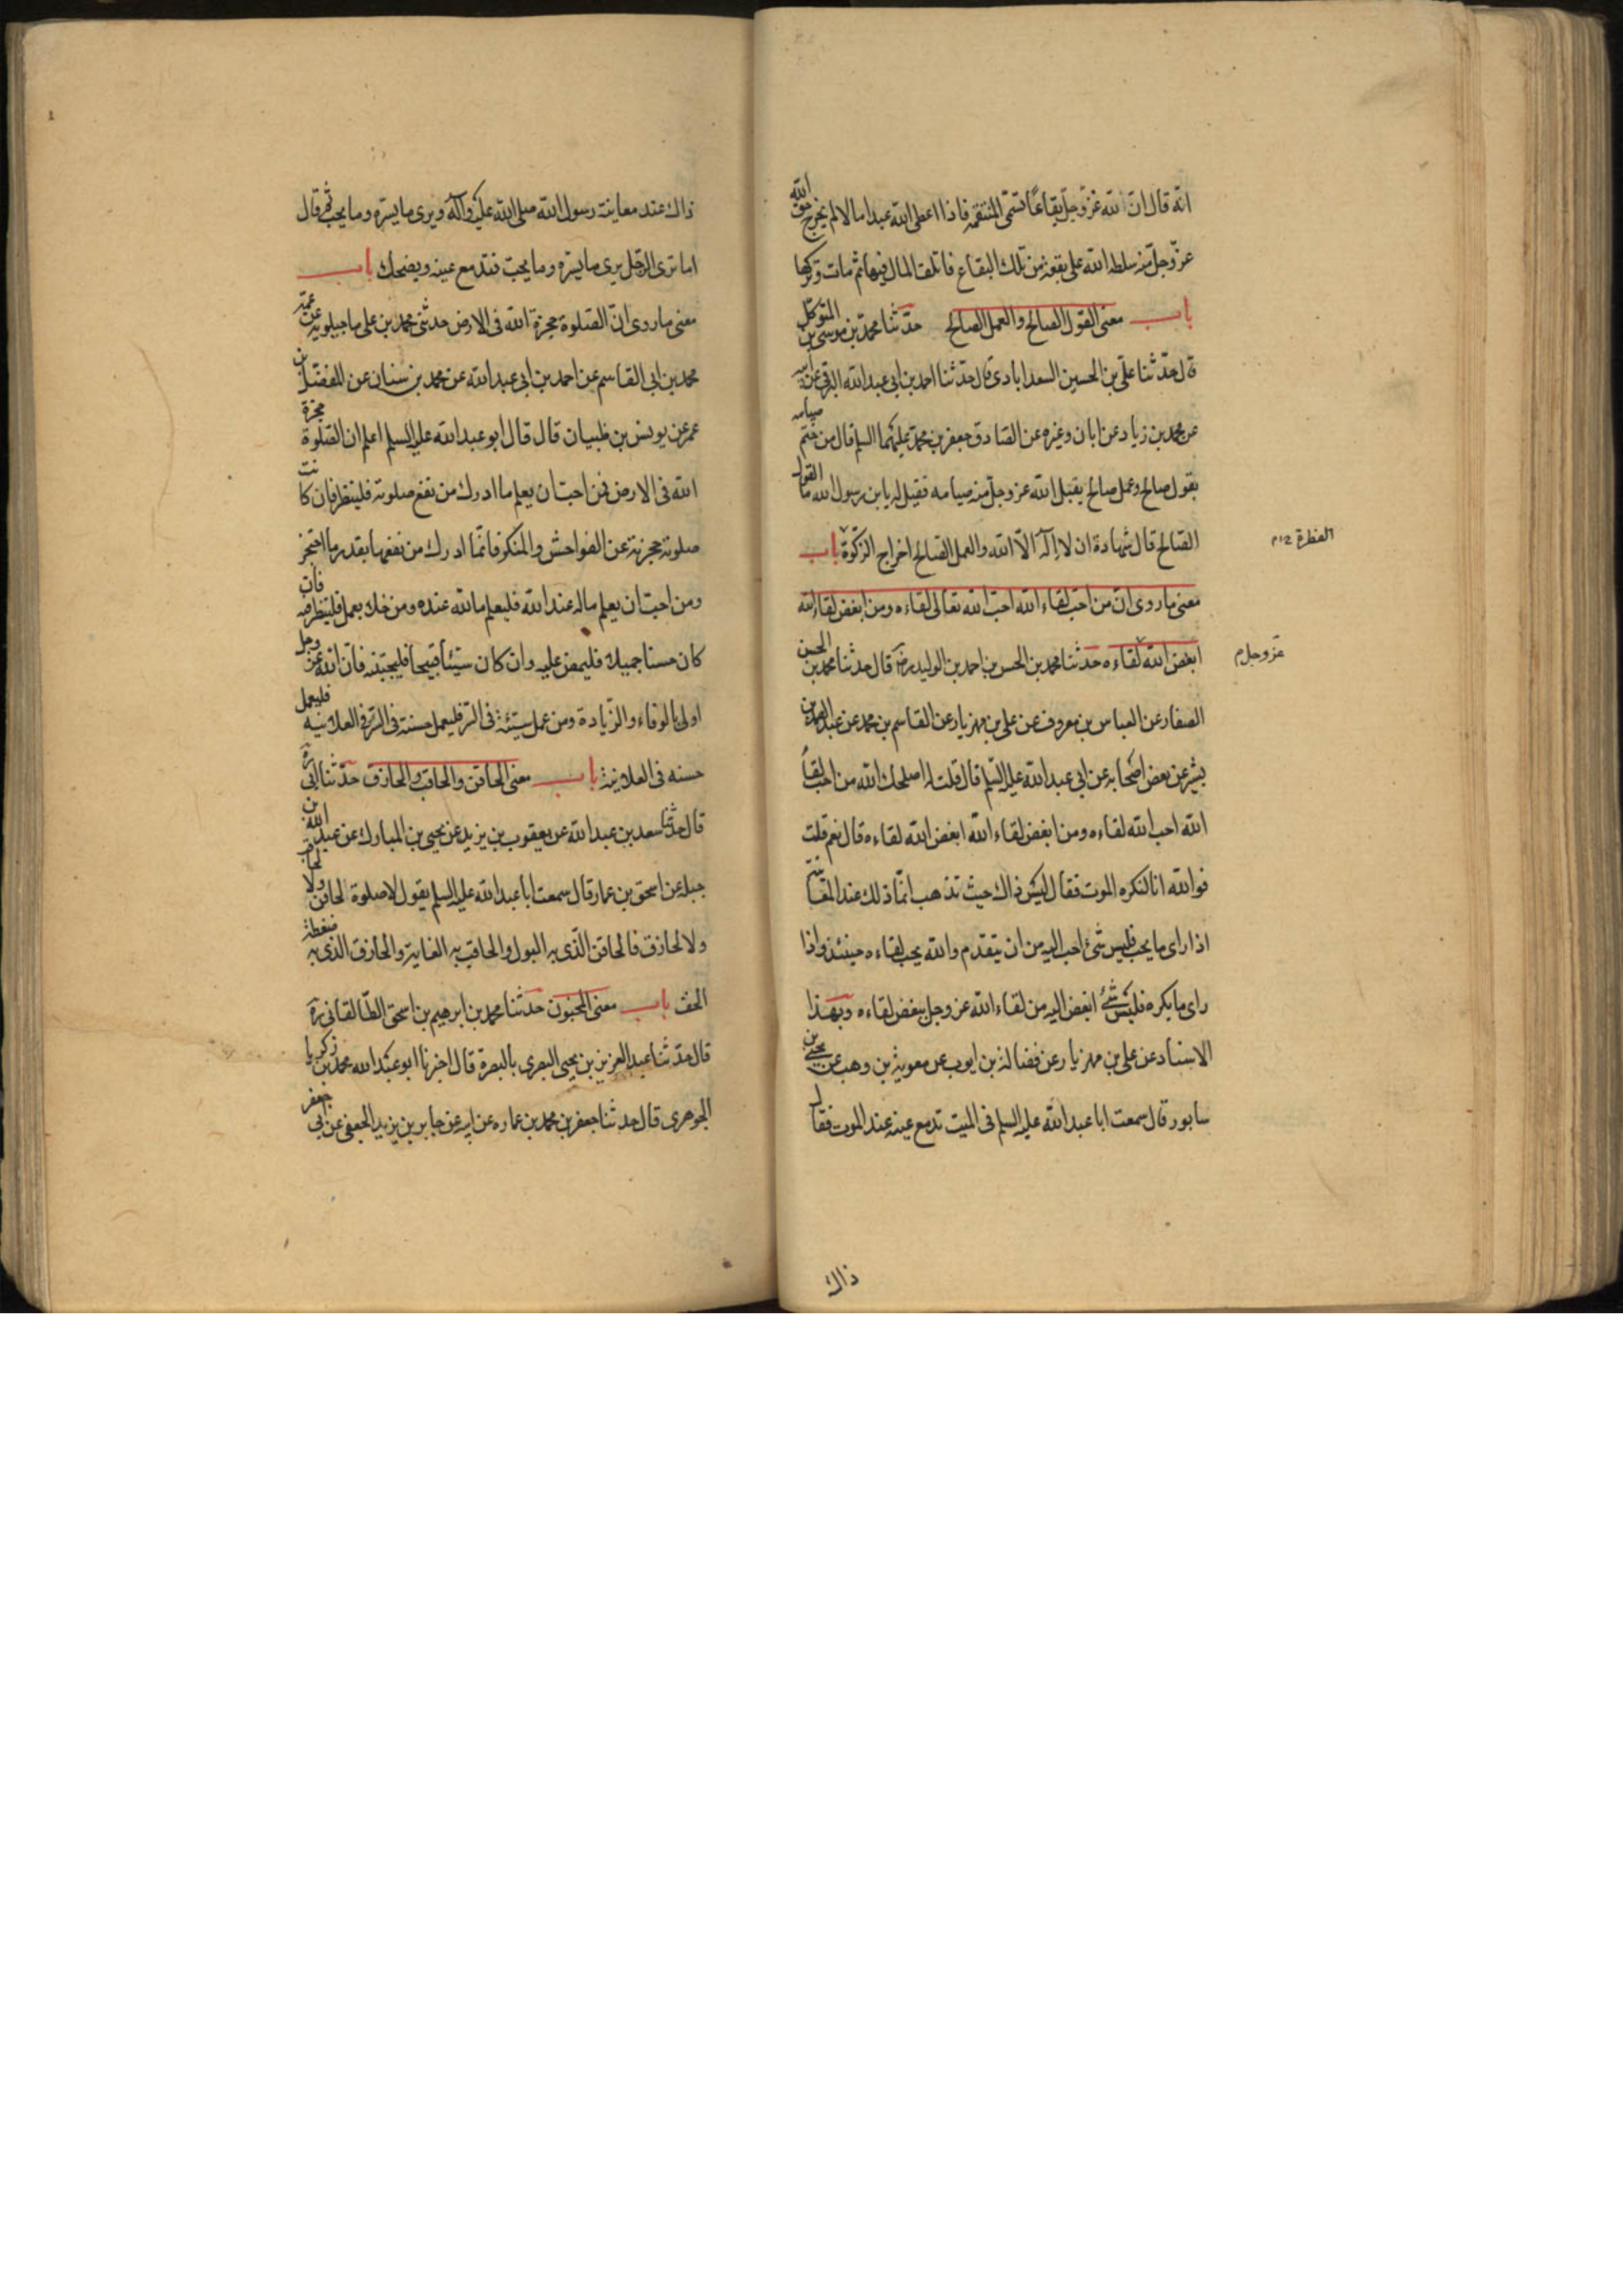 انّه قال انّ الله عزّ وجلّ بقاعًا تسمّى المنتقمه فاذا اعطى الله عبدا مالا لم يخرج حق الله
عزّ وجلّ منه سلط الله على بقعة من تلك البقاع فاتلف المال فيها ثم مات وتركها
باب معنى القول الصالح والعمل الصالح حدّثنا محمّد بن موسى بن المتوكّل
قال حدّثنا علّى بن الحسين السعدابادى قال حدّثنا احمد بن ابى عبد الله البرقى عن ابيه
عن محمد بن زياد عن ابان وغيره عن الصّادق جعفر بن محمّد عليهما السلم قال من ختم صيامه
بقول صالح وعمل صالح يقبل الله عز وجلّ منه صيامه فقيل له يا بن رسول الله ما القول
الصّالح قال شهادة ان لا اِلٓه الّا الله والعمل الصّالح اخراج الزكوة باب
الفطرة م
معنى ما روى انّ من احبّ لقاء الله احبّ الله تعالى لقاءه ومن ابغض لقاء الله
ابغض الله لقاءه حدّثنا محمد بن الحسن بن احمد بن الوليد رضه قال حدثنا محمد بن الحسن
عز وجل م
الصفار عن العباس بن معروف عن على بن مهزيار عن القاسم بن محمد عن عبد الصمد بن
بشير عن بعض اصحابه عن ابى عبد الله عليه السّلم قال قلت له اصلحك الله من احب لقاء
الله احب الله لقاءه ومن ابغض لقاء الله ابغض الله لقاءه قال نعم قلت
فوالله انا لنكره الموت فقال ليس ذاك حيث تذهب انّما ذلك عند المعاينة
اذا راى ما يحب فليس شئ احب اليه من ان يتقدم والله يحب لقاءه حينئذ واذا
راى ما يكره فليس شئ ابغض اليه من لقاء الله عز وجل يبغض لقاءه وبهذا
الاسناد عن على بن مهزيار عن فضالة بن ايوب عن معوية بن وهب عن يحيى بن
سابور قال سمعت ابا عبد الله عليه السلم فى الميت تدمع عينه عند الموت فقال
ذاك
ذاك عند معاينة رسول الله صلى الله عليه وآله ويرى ما يسرّه وما يحب ثم قال
اما ترى الرّجل يرى ما يسرّه وما يحبّ فتدمع عينه ويضحك باب
معنى ما روى انّ الصّلوة حجزة الله فى الارض حدثنى محمد بن على ماجيلويه عن عمّه
محمد بن ابى القاسم عن احمد بن ابى عبد الله عن محمد بن سنان عن المفضّل بن
عمر عن يونس بن ظبيان قال قال ابو عبد الله عليه السلم اعلم ان الصّلوة حجزة
الله فى الارض فمن احبّ ان يعلم ما ادرك من نفع صلوته فلينظر فان كانت
صلوته حجزته عن الفواحش والمنكر فانّما ادرك من نفعها بقدر ما احتجز
ومن احبّ ان يعلم ماله عند الله فليعلم ما لله عنده ومن خلك بعمل فلينظر فيه فان
كان حسنا جميلا فليمض عليه وان كان سيّئا قبيحا فليجتبنه فانّ الله عز وجل
اولى بالوفاء والزّيادة ومن عمل سيّئة فى السّر فليعمل حسنة فى السّر فى العلانيه فليعمل
حسنه فى العلانية باب معنى الحاقن والحاقب والحازق حدّثنا ابى ره
قال حدّثنا سعد بن عبد الله عن يعقوب بن يزيد عن يحيى بن المبارك عن عبد الله بن
جبله عن اسحق بن عمار قال سمعت ابا عبد الله عليه السلم يقول لا صلوة لحاقن ولا لحاقب
ولا لحازق فالحاقن الّذى به البول والحاقب به الغاية والحازق الذى به ضغطة
الخف باب معنى المجنون حدّثنا محمد بن ابرهيم بن اسحق الطّالقانى ره
قال حدّثنا عبد العزيز بن يحيى البصرى بالبصرة قال اخبرنا ابو عبد الله محمد بن زكريا
الجوهرى قال حدثنا جعفر بن محمد بن عماره عن ابيه عن جابر بن يزيد الجعفى عن ابى جعفر